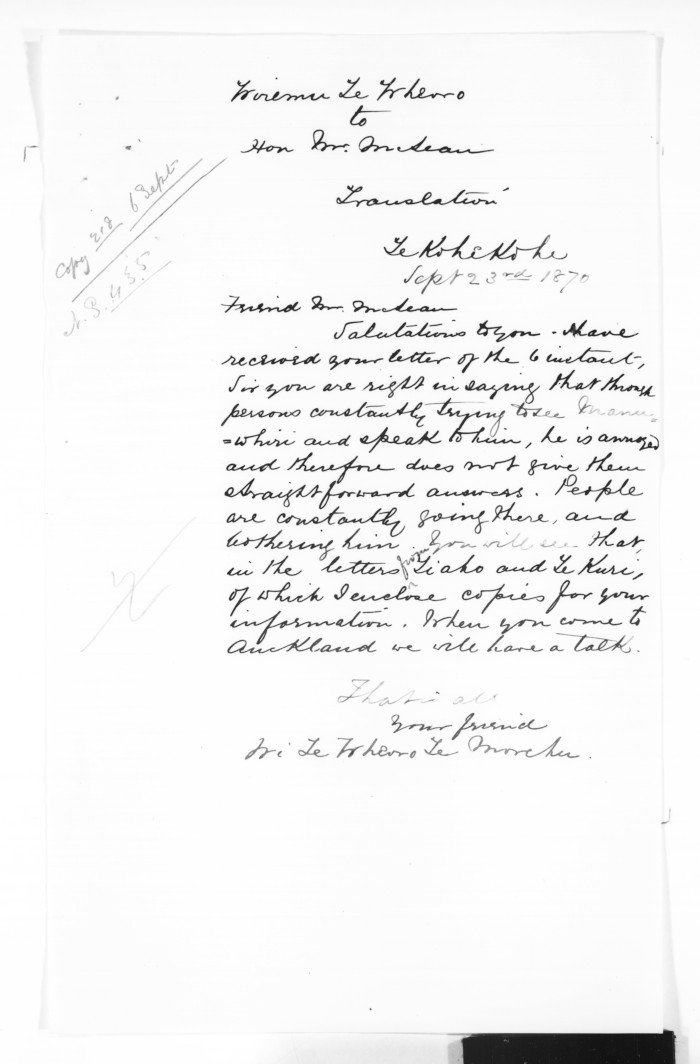 Wiremu Te Wheoro
to
Hon Mr. McLean
Translation
Te Kohekohe
Sept 23rd 1870
Friend Mr. McLean
Salutations to you - I have
received your letter of the 6 instant,
Sir you are right in saying that through
persons constantly trying to see Manu=
=whiri and speak to him, he is annoyed
and therefore does not give them
straightforward answers. People
are constantly going there, and
bothering him. You will see that,
in the letters from Tiaho and Te Kuri,
of which I enclose copies for your
information. When you come to
Auckland we will have a talk.
That is all
Your friend
Wi Te Wheoro Te Morehu.
Copy 6 Sept
N.S. 435